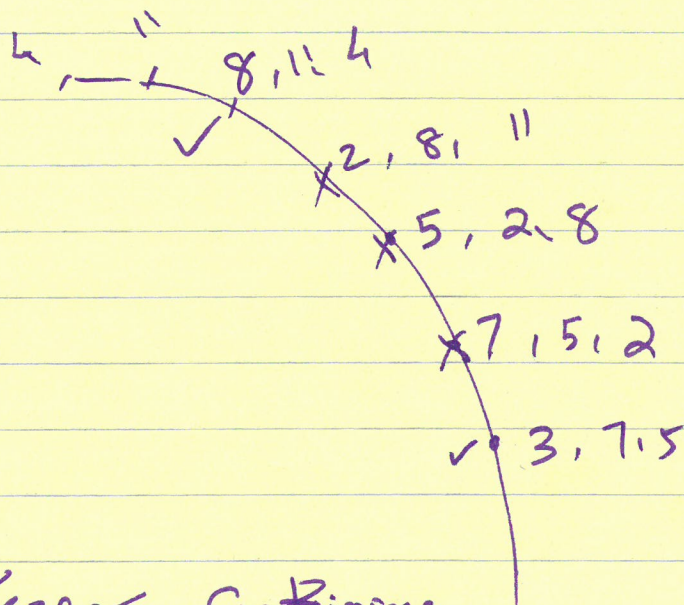 4 11
8, 11, 4
2, 8, 11
5, 2, 8
7, 5, 2
3, 7, 5